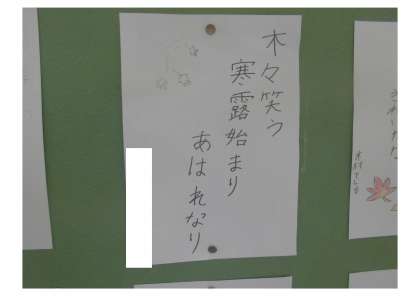 木々笑う
寒露始まり
あはれなり